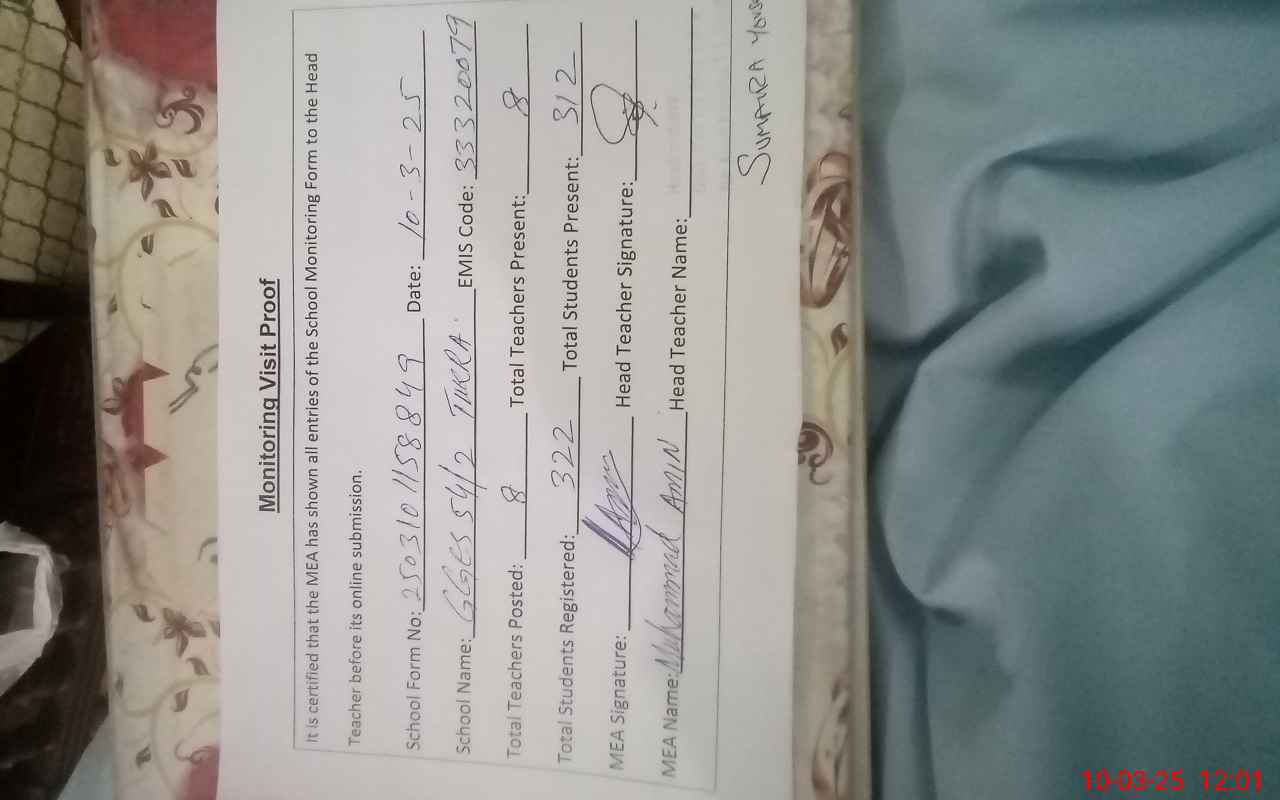 Monitoring Visit Proof
It is certified that the MEA has shown all entries of the School Monitoring Form to the Head
Teacher before its online submission.
School Form No: 2503101158849 Date: 10-3-25
School Name: GGES 54/2 TUKRA. EMIS Code: 33320079
Total Teachers Posted: 8 Total Teachers Present: 8
Total Students Registered: 322 Total Students Present: 312
MEA Signature: Head Teacher Signature:
MEA Name: Muhammad AMIN Head Teacher Name:
SUMAIRA
10-03-25 12:01